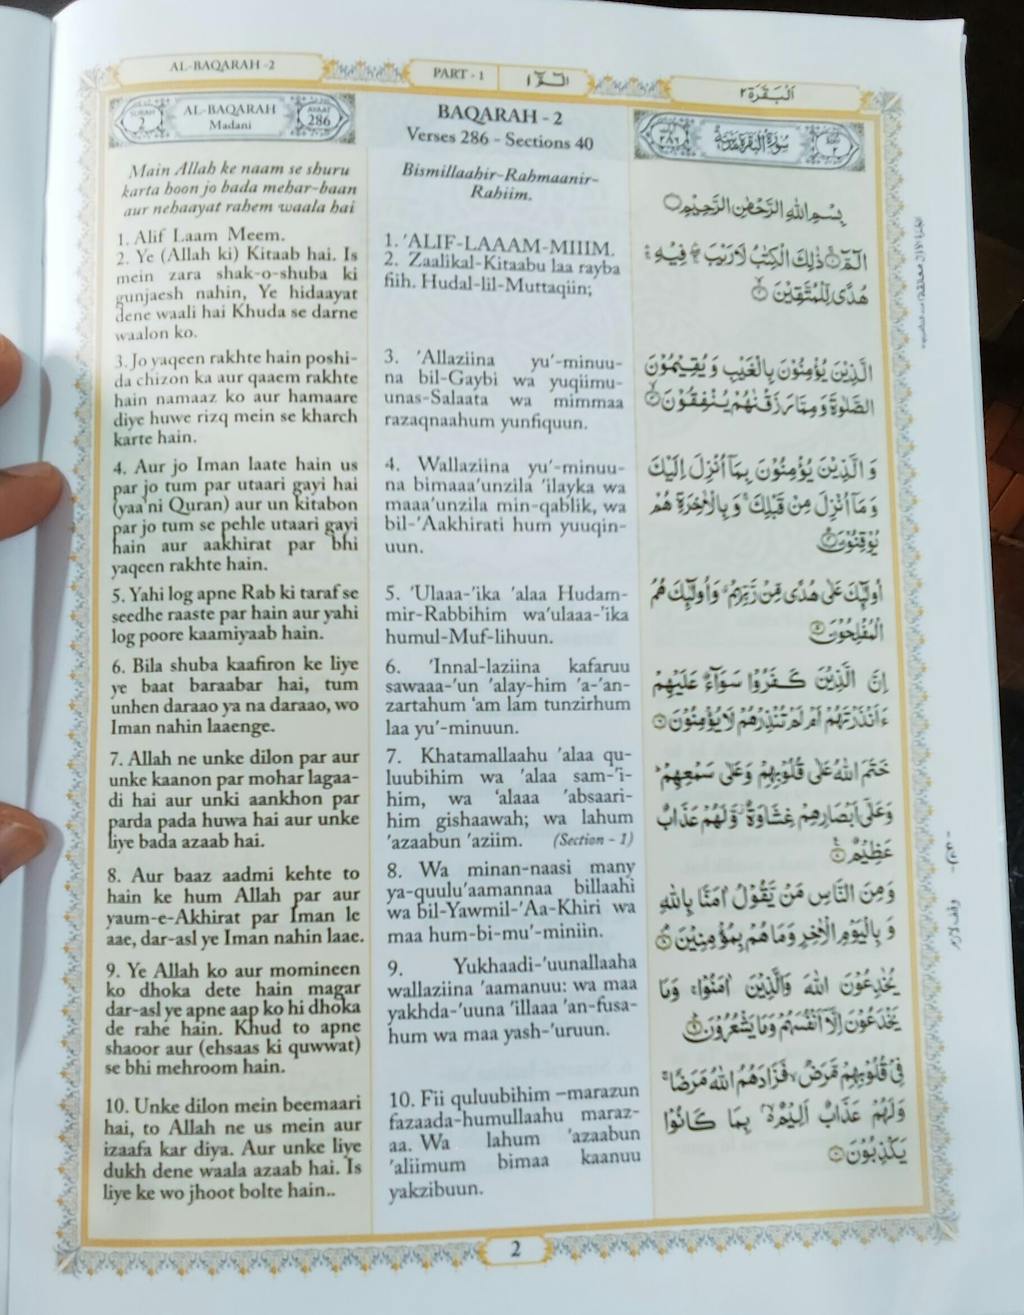 AL-BAQARAH -2
PART - 1
الٓمّٓ ١
اَلْبَقَرَة ٢
SURAH
2
AL-BAQARAH
Madani
AYAAT
286
Main Allah ke naam se shuru
karta hoon jo bada mehar-baan
aur nehaayat rahem waala hai
1. Alif Laam Meem.
2. Ye (Allah ki) Kitaab hai. Is
mein zara shak-o-shuba ki
gunjaesh nahin, Ye hidaayat
dene waali hai Khuda se darne
waalon ko.
3. Jo yaqeen rakhte hain poshi-
da chizon ka aur qaaem rakhte
hain namaaz ko aur hamaare
diye huwe rizq mein se kharch
karte hain.
4. Aur jo Iman laate hain us
par jo tum par utaari gayi hai
(yaa'ni Quran) aur un kitabon
par jo tum se pehle utaari gayi
hain aur aakhirat par bhi
yaqeen rakhte hain.
5. Yahi log apne Rab ki taraf se
seedhe raaste par hain aur yahi
log poore kaamiyaab hain.
6. Bila shuba kaafiron ke liye
ye baat baraabar hai, tum
unhen daraao ya na daraao, wo
Iman nahin laaenge.
7. Allah ne unke dilon par aur
unke kaanon par mohar lagaa-
di hai aur unki aankhon par
parda pada huwa hai aur unke
liye bada azaab hai.
8. Aur baaz aadmi kehte to
hain ke hum Allah par aur
yaum-e-Akhirat par Iman le
aae, dar-asl ye Iman nahin laae.
9. Ye Allah ko aur momineen
ko dhoka dete hain magar
dar-asl ye apne aap ko hi dhoka
de rahe hain. Khud to apne
shaoor aur (ehsaas ki quwwat)
se bhi mehroom hain.
10. Unke dilon mein beemaari
hai, to Allah ne us mein aur
izaafa kar diya. Aur unke liye
dukh dene waala azaab hai. Is
liye ke wo jhoot bolte hain..
BAQARAH - 2
Verses 286 - Sections 40
Bismillaahir-Rahmaanir-
Rahiim.
1. 'ALIF-LAAAM-MIIIM.
2. Zaalikal-Kitaabu laa rayba
fiih. Hudal-lil-Muttaqiin;
3. 'Allaziina yu'-minuu-
na bil-Gaybi wa yuqiimu-
unas-Salaata wa mimmaa
razaqnaahum yunfiquun.
4. Wallaziina yu'-minuu-
na bimaaa'unzila 'ilayka wa
maaa'unzila min-qablik, wa
bil-'Aakhirati hum yuuqin-
uun.
5. 'Ulaaa-'ika 'alaa Hudam-
mir-Rabbihim wa'ulaaa-'ika
humul-Muf-lihuun.
6. 'Innal-laziina kafaruu
sawaaa-'un 'alay-him 'a-'an-
zartahum 'am lam tunzirhum
laa yu'-minuun.
7. Khatamallaahu 'alaa qu-
luubihim wa 'alaa sam-'i-
him, wa 'alaaa 'absaari-
him gishaawah; wa lahum
'azaabun 'aziim. (Section - 1)
8. Wa minan-naasi many
ya-quulu'aamannaa billaahi
wa bil-Yawmil-'Aa-Khiri wa
maa hum-bi-mu'-miniin.
9. Yukhaadi-'uunallaaha
wallaziina 'aamanuu: wa maa
yakhda-'uuna 'illaaa 'an-fusa-
hum wa maa yash-'uruun.
10. Fii quluubihim –marazun
fazaada-humullaahu maraz-
aa. Wa lahum 'azaabun
'aliimum bimaa kaanuu
yakzibuun.
٢٨٦
سُوْرَةُ الْبَقَرَةِ مَدَنِيَّةٌ
٢
بِسْمِ اللهِ الرَّحْمٰنِ الرَّحِيْمِ
الٓمّٓ ۚ ذٰلِكَ الْكِتٰبُ لَا رَيْبَ ۛ فِيْهِ ۛ
هُدًى لِّلْمُتَّقِيْنَ ۙ
الَّذِيْنَ يُؤْمِنُوْنَ بِالْغَيْبِ وَ يُقِيْمُوْنَ
الصَّلٰوةَ وَ مِمَّا رَزَقْنٰهُمْ يُنْفِقُوْنَ ۙ
وَ الَّذِيْنَ يُؤْمِنُوْنَ بِمَاۤ اُنْزِلَ اِلَيْكَ
وَ مَاۤ اُنْزِلَ مِنْ قَبْلِكَ ۚ وَ بِالْاٰخِرَةِ هُمْ
يُوْقِنُوْنَ
اُولٰٓئِكَ عَلٰى هُدًى مِّنْ رَّبِّهِمْ ۗ وَ اُولٰٓئِكَ هُمُ
الْمُفْلِحُوْنَ
اِنَّ الَّذِيْنَ كَفَرُوْا سَوَآءٌ عَلَيْهِمْ
ءَاَنْذَرْتَهُمْ اَمْ لَمْ تُنْذِرْهُمْ لَا يُؤْمِنُوْنَ
خَتَمَ اللهُ عَلٰى قُلُوْبِهِمْ وَ عَلٰى سَمْعِهِمْ ؕ
وَ عَلٰۤى اَبْصَارِهِمْ غِشَاوَةٌ ۫ وَّ لَهُمْ عَذَابٌ
عَظِيْمٌ
وَ مِنَ النَّاسِ مَنْ يَّقُوْلُ اٰمَنَّا بِاللهِ
وَ بِالْيَوْمِ الْاٰخِرِ وَ مَا هُمْ بِمُؤْمِنِيْنَ ۘ
يُخٰدِعُوْنَ اللهَ وَ الَّذِيْنَ اٰمَنُوْا ۚ وَ مَا
يَخْدَعُوْنَ اِلَّاۤ اَنْفُسَهُمْ وَ مَا يَشْعُرُوْنَ ؕ
فِيْ قُلُوْبِهِمْ مَّرَضٌ ۙ فَزَادَهُمُ اللهُ مَرَضًا ۚ
وَ لَهُمْ عَذَابٌ اَلِيْمٌۢ ۙ بِمَا كَانُوْا
يَكْذِبُوْنَ
وقف لازم
2